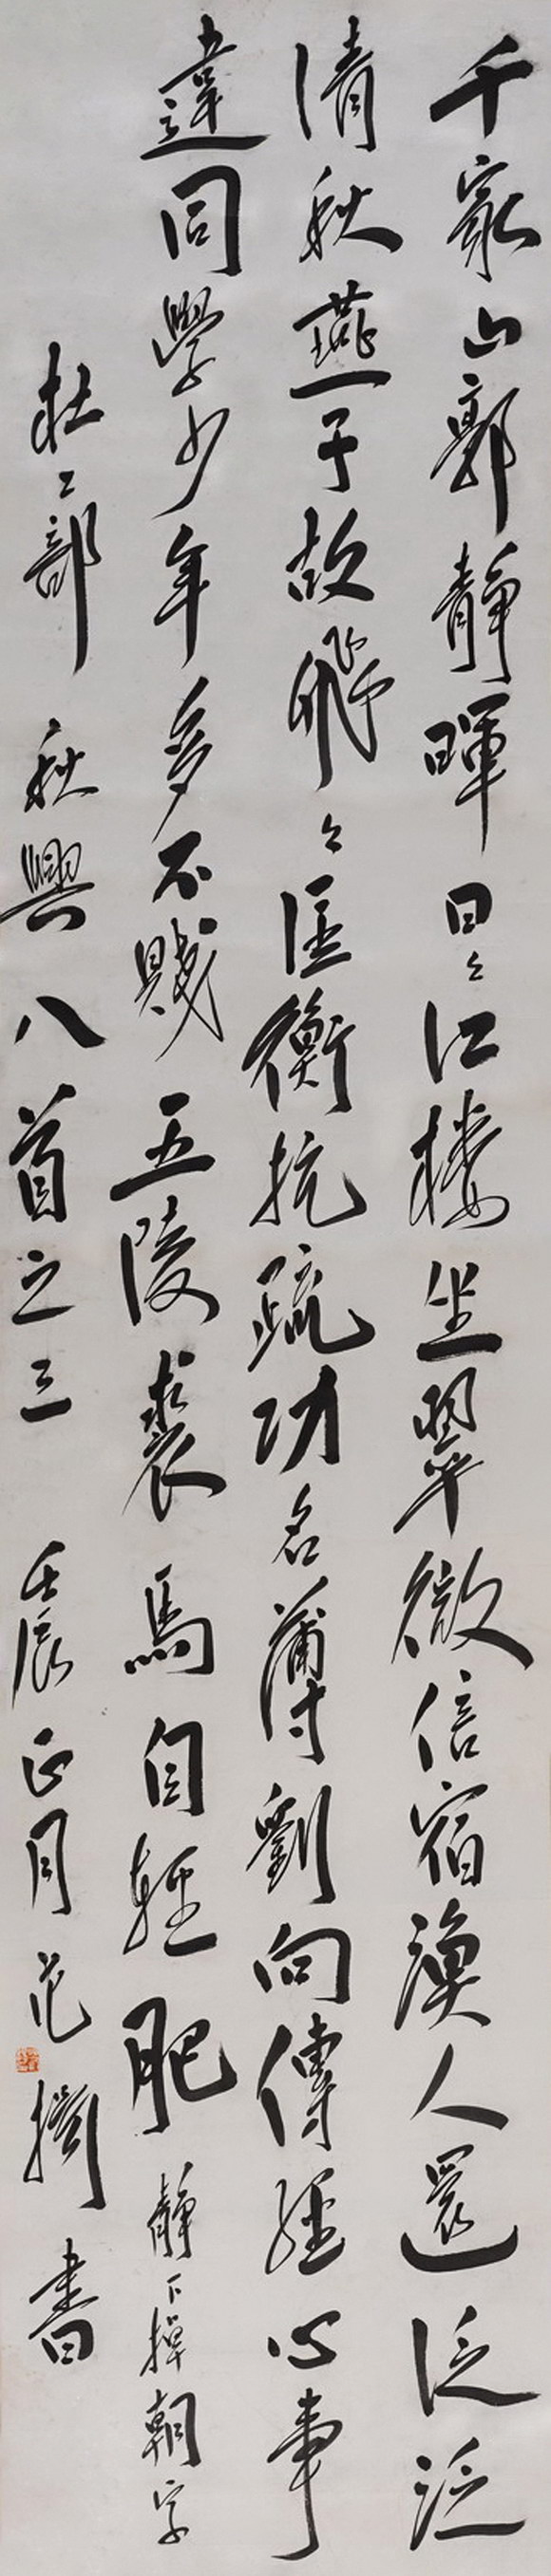 千家山郭靜暉日々江樓坐翠微信宿漁人還泛泛
清秋燕子故飛々匡衡抗疏功名薄劉向傳經心事
違同學少年多不賤五陵裘馬自輕肥靜下掉朝字
杜工部秋興八首之三壬辰正月范書